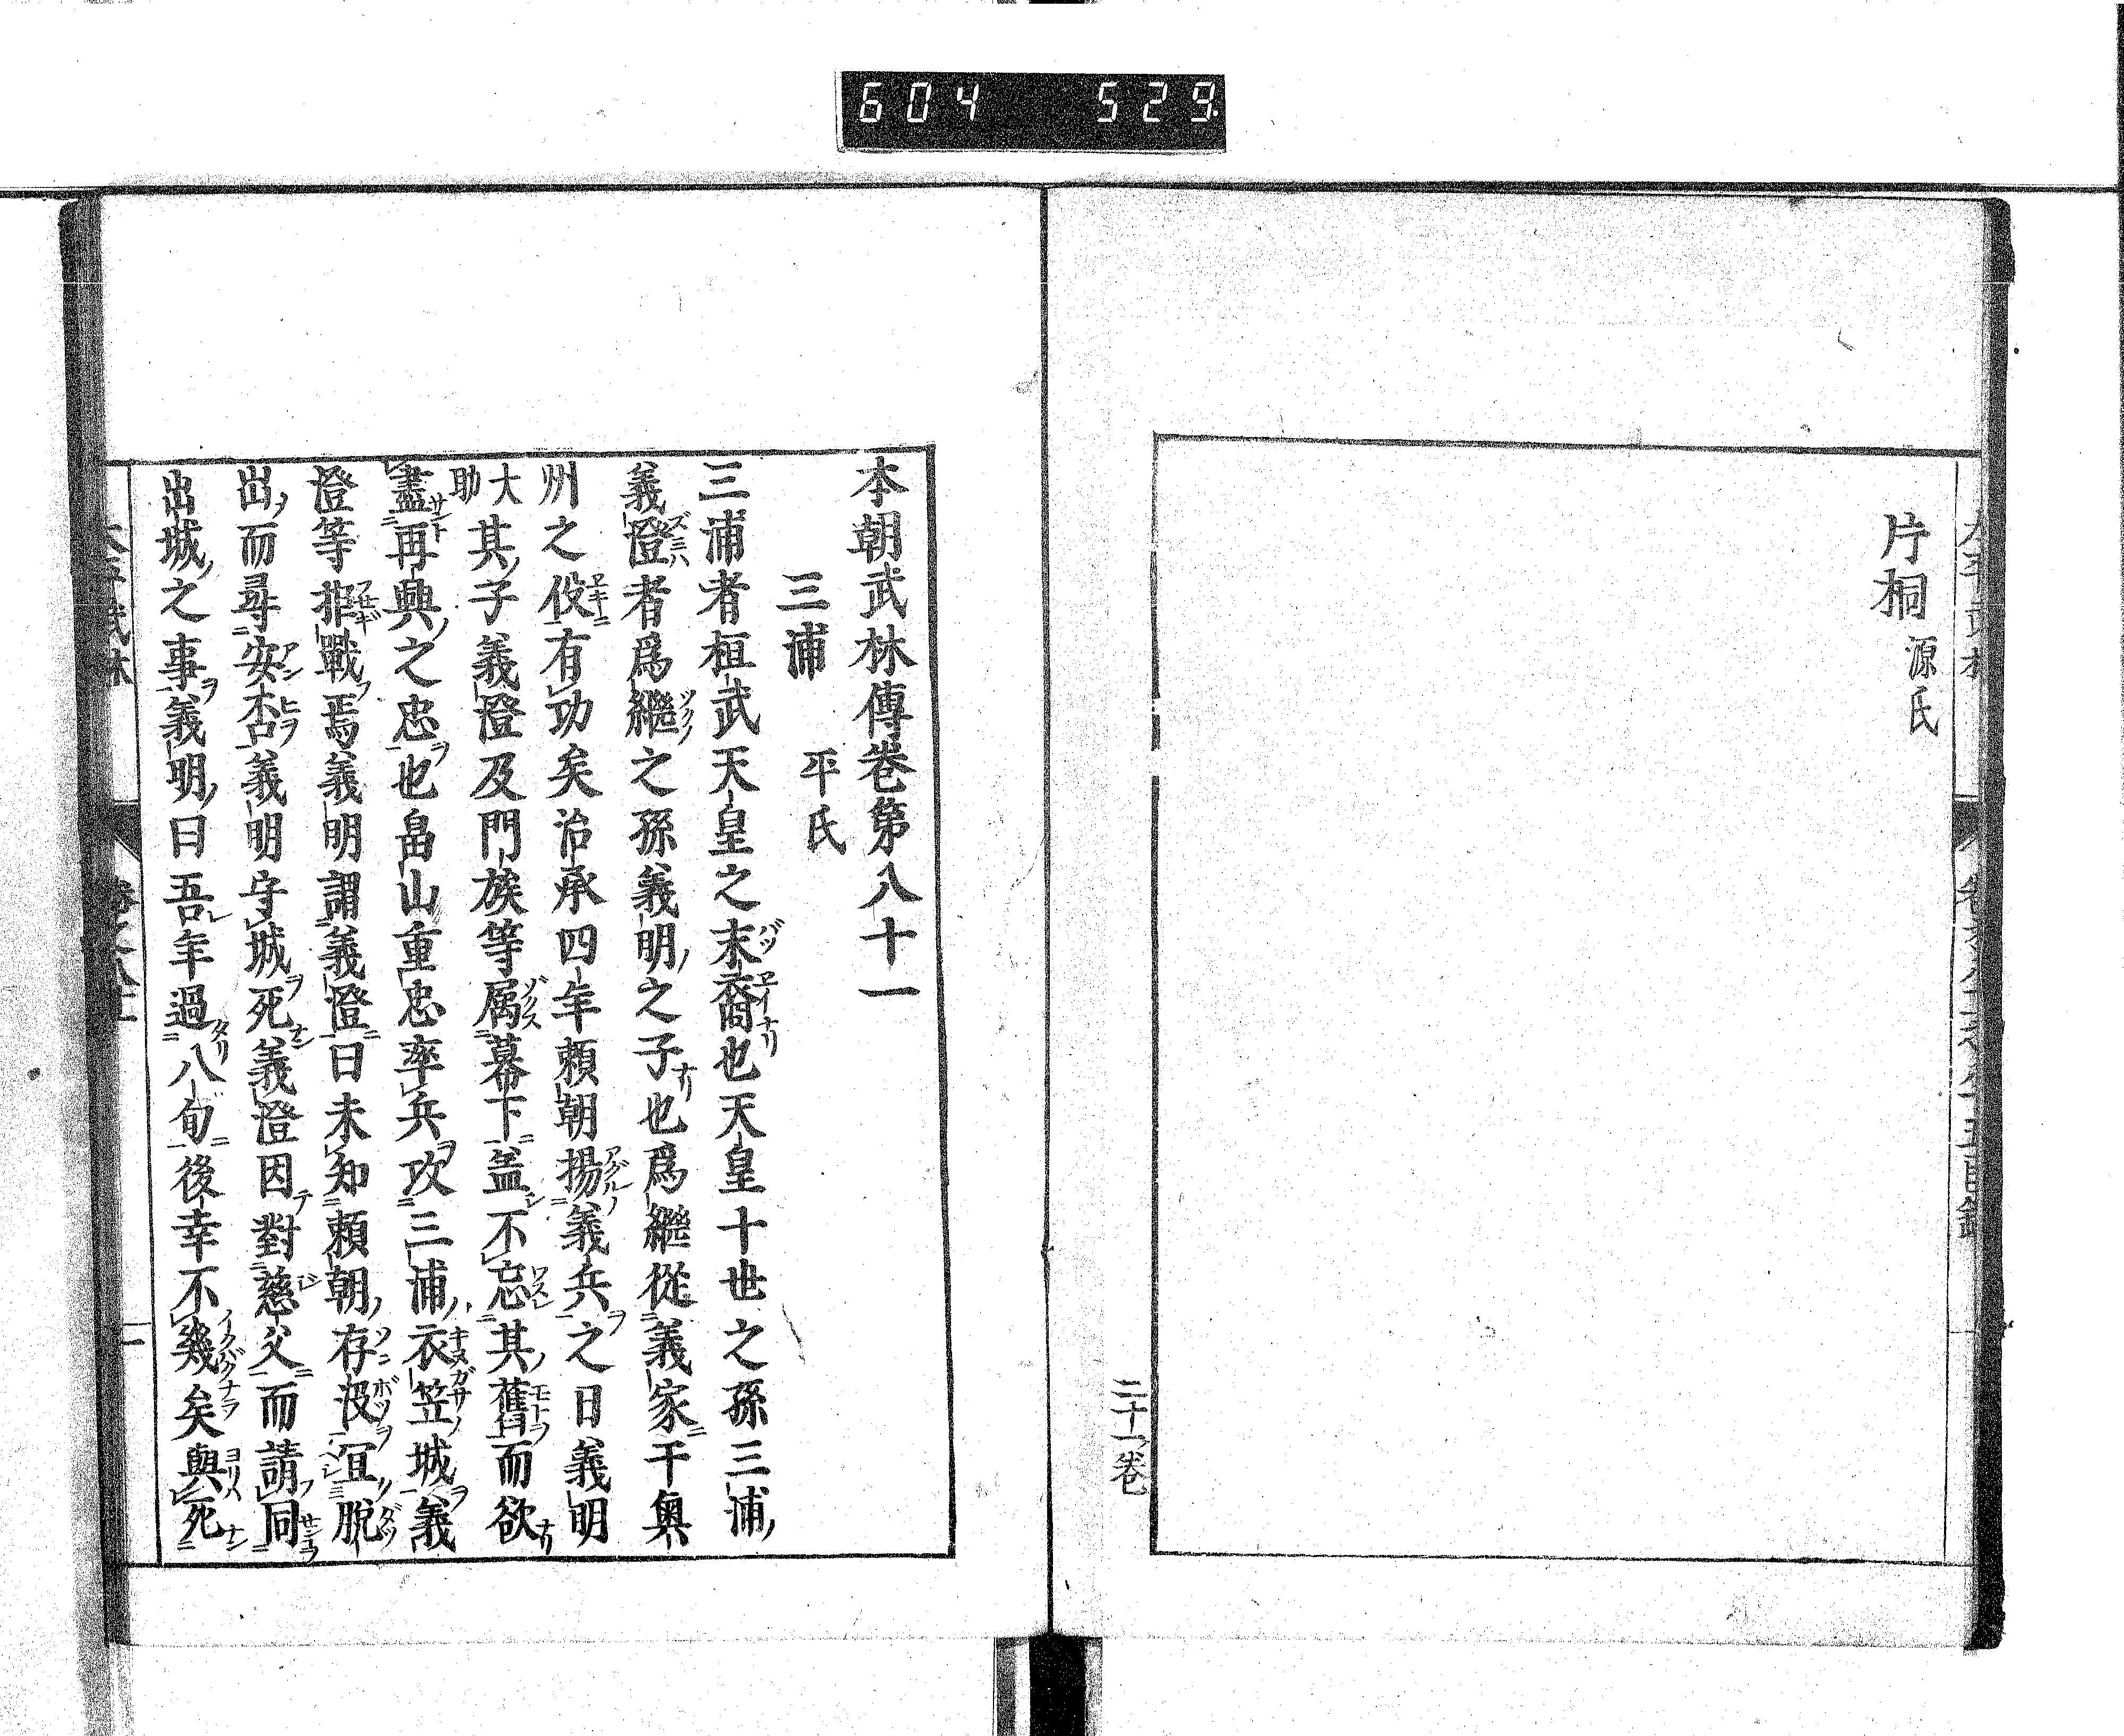 604 529
片桐 源氏
二十一巻
本朝武林傳卷第八十一
三浦 平氏
三浦者桓武天皇之末裔也天皇十世之孫三浦
義澄者爲繼之孫義明之子也爲繼從義家于奥
州之役有功矣治承四年頼朝揚義兵之日義明
大助其子義澄及門族等属幕下盖不忘其舊而欲
盡再興之忠也畠山重忠率兵攻三浦衣笠城義
澄等拒戰焉義明謂義澄曰未知頼朝存没宜脱
出而尋安否義明守城死義澄因對慈父而請同
出城之事義明曰吾年過八旬後幸不幾矣與死